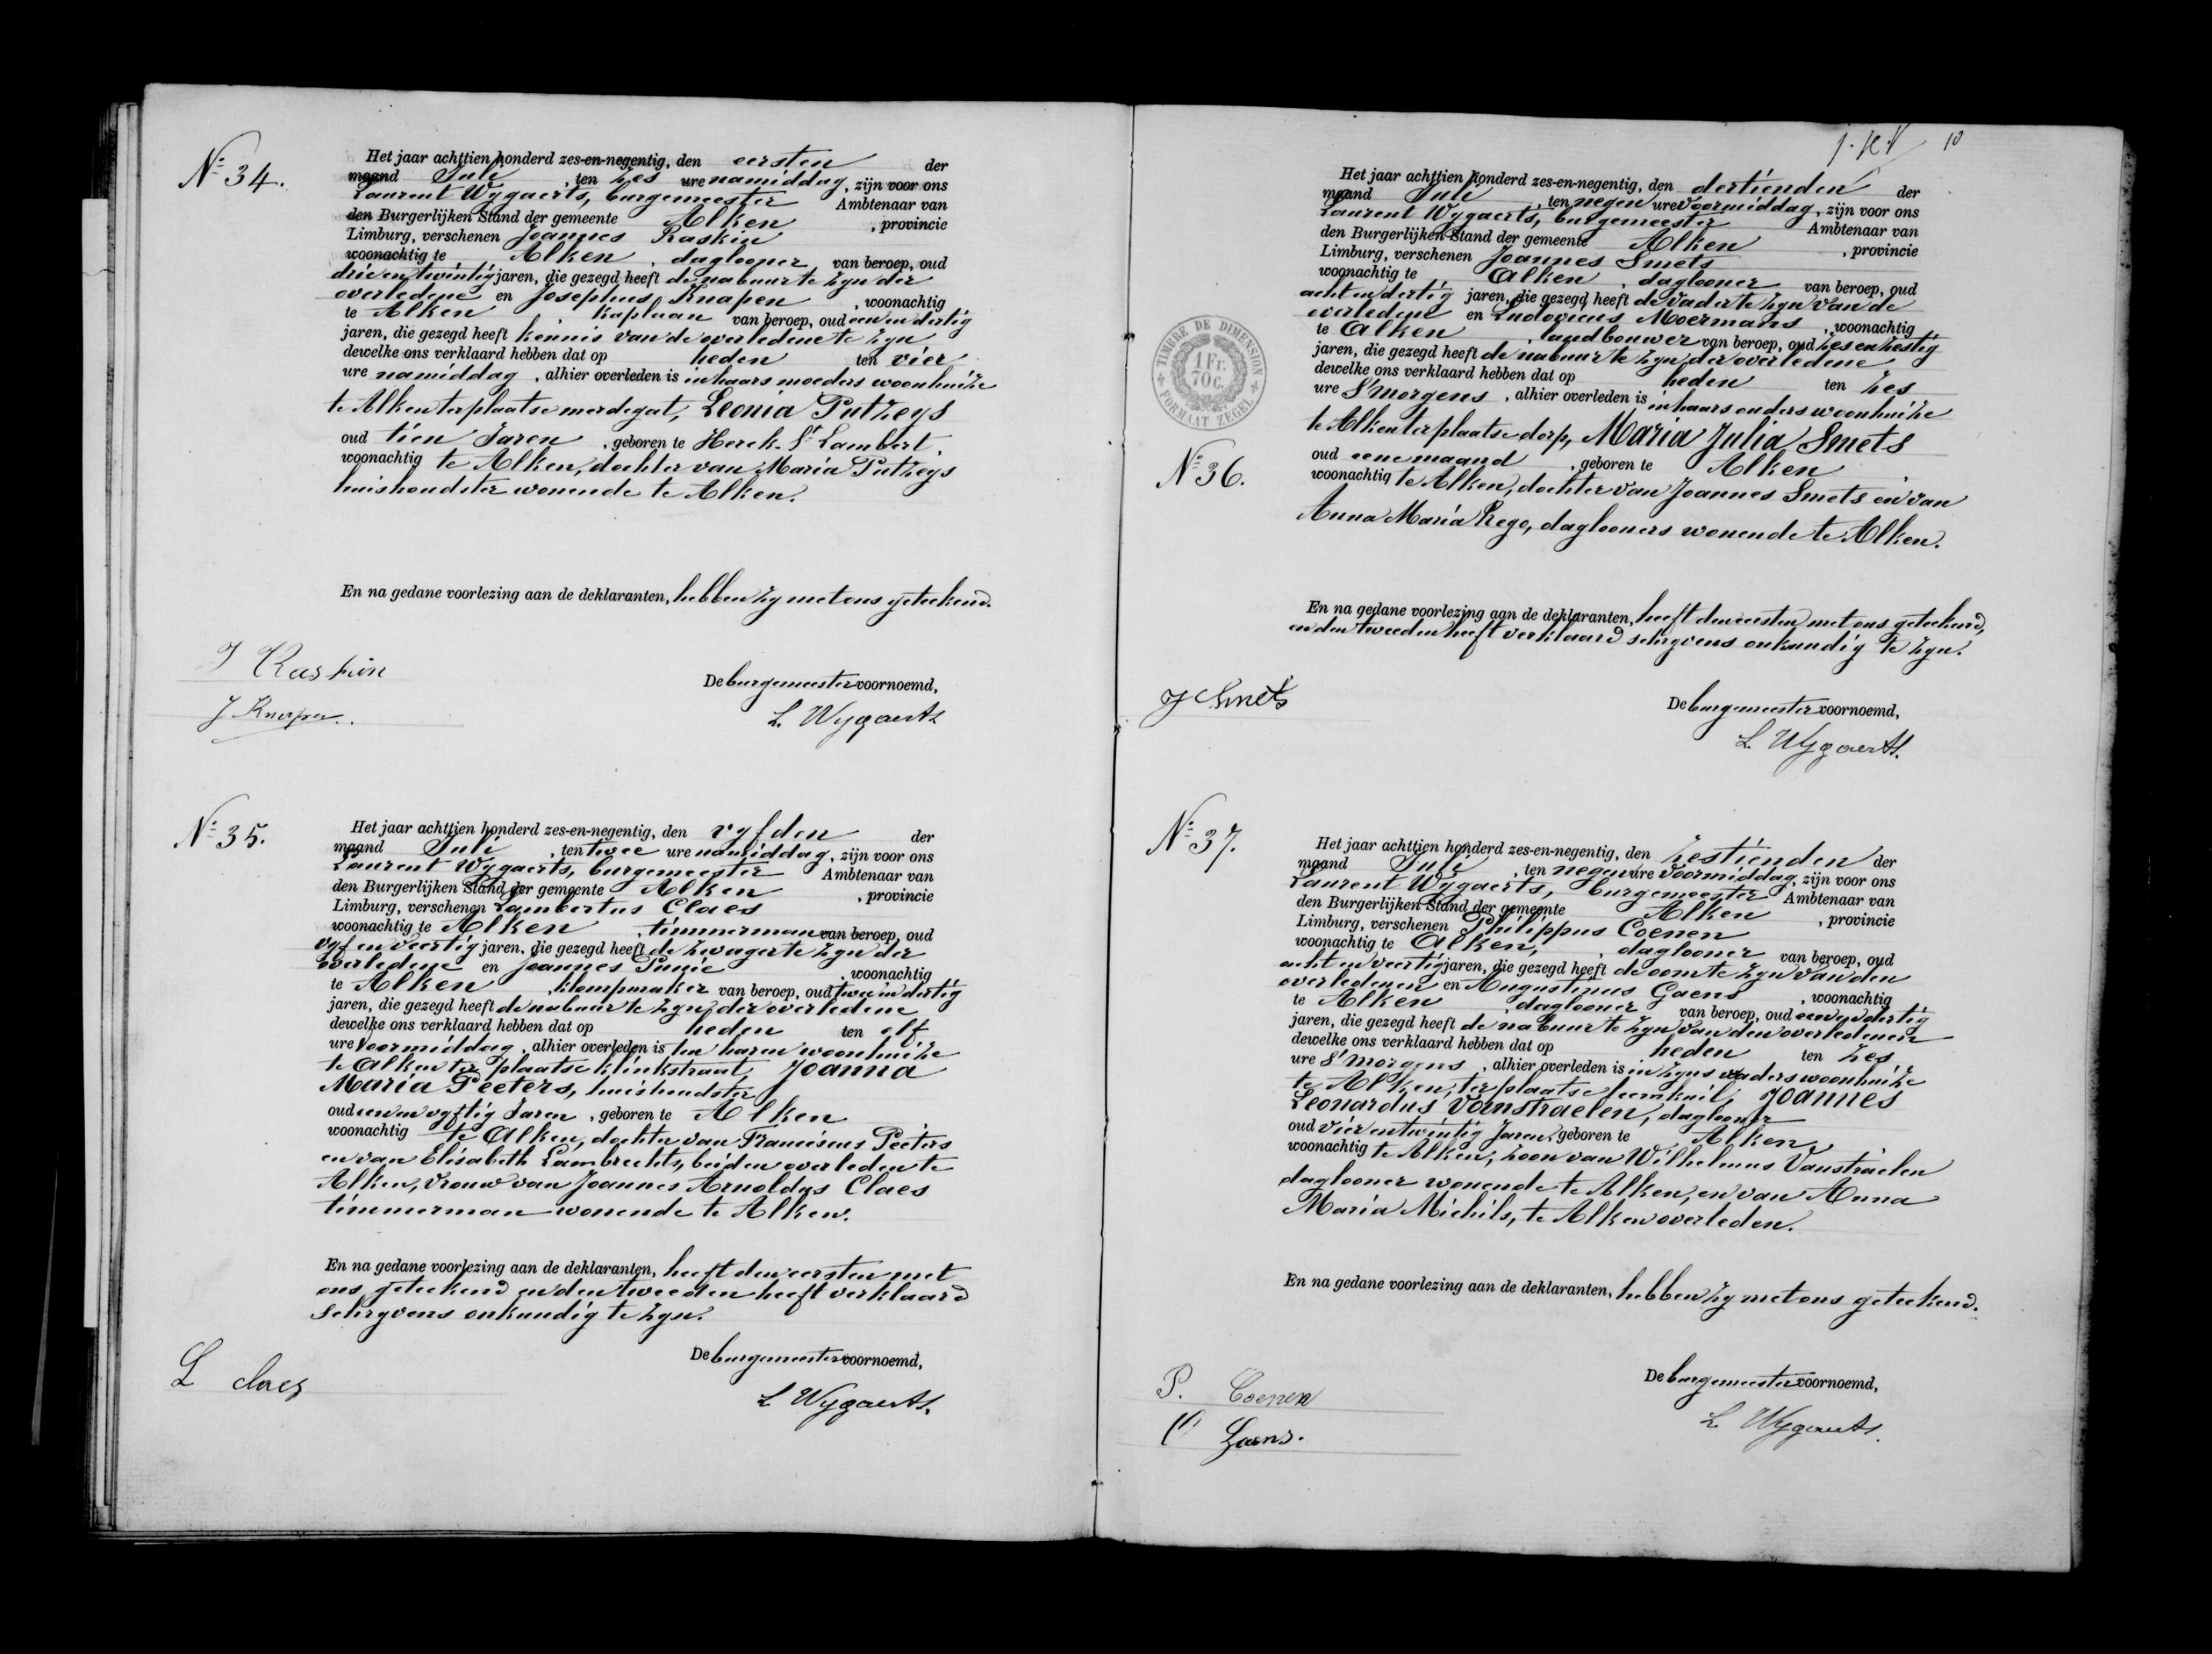 Nº 34.
Het jaar achttien honderd zes-en-negentig, den eersten der
maand Juli, ten zes ure namiddag, zijn voor ons
Laurent Wygaerts, burgemeester Ambtenaar van
den Burgerlijken Stand der gemeente Alken, provincie
Limburg, verschenen Joannes Raskin
woonachtig te Alken, daglooner van beroep, oud
drie en twintig jaren, die gezegd heeft de nabuur te zyn der
overledene en Josephus Knapen, woonachtig
te Alken, kaplaan van beroep, oud een en dertig
jaren, die gezegd heeft kennis van de overledene te zyn
dewelke ons verklaard hebben dat op heden ten vier
ure namiddag, alhier overleden is in haars moeders woonhuize
te Alken ter plaatse merdegat, Leonia Putzeys
oud tien Jaren, geboren te Herck-St Lambert,
woonachtig te Alken, dochter van Maria Putzeys
huishoudster wonende te Alken.
En na gedane voorlezing aan de deklaranten, hebben zy met ons geteekend.
J Raskin
De burgemeester voornoemd,
J Knapen.
L. Wygaerts
Nº 35.
Het jaar achttien honderd zes-en-negentig, den vyfden der
maand Juli, ten twee ure namiddag, zijn voor ons
Laurent Wygaerts, burgemeester Ambtenaar van
den Burgerlijken Stand der gemeente Alken, provincie
Limburg, verschenen Lambertus Claes
woonachtig te Alken, timmerman van beroep, oud
vyf en veertig jaren, die gezegd heeft de zwager te zyn der
overledene en Joannes Punie, woonachtig
te Alken, klompmaker van beroep, oud twee en dertig
jaren, die gezegd heeft de nabuur te zyn der overledene
dewelke ons verklaard hebben dat op heden ten elf
ure voormiddag, alhier overleden is ten haren woonhuize
te Alken ter plaatse klinkstraat, Joanna
Maria Peeters, huishoudster
oud een en vyftig Jaren, geboren te Alken
woonachtig te Alken, dochter van Franciscus Peeters
en van Elisabeth Lambrechts, beiden overleden te
Alken, vrouw van Joannes Arnoldus Claes
timmerman wonende te Alken.
En na gedane voorlezing aan de deklaranten, heeft den eersten met
ons geteekend en den tweeden heeft verklaard
schryvens onkundig te zyn.
De burgemeester voornoemd,
L Claes
L Wygaerts.
10
TIMBRE DE DIMENSION
1 Fr. 70 C.
FORMAAT ZEGEL
Nº 36.
Het jaar achttien honderd zes-en-negentig, den dertienden der
maand Juli, ten negen ure voormiddag, zijn voor ons
Laurent Wygaerts, burgemeester Ambtenaar van
den Burgerlijken Stand der gemeente Alken, provincie
Limburg, verschenen Joannes Smets
woonachtig te Alken, daglooner van beroep, oud
acht en dertig jaren, die gezegd heeft de vader te zyn van de
overledene en Ludovicus Moermans, woonachtig
te Alken, landbouwer van beroep, oud zes en zestig
jaren, die gezegd heeft de nabuur te zyn der overledene
dewelke ons verklaard hebben dat op heden ten zes
ure s'morgens, alhier overleden is in haars ouders woonhuize
te Alken ter plaatse dorp, Maria Julia Smets
oud eene maand, geboren te Alken
woonachtig te Alken, dochter van Joannes Smets en van
Anna Maria Rego, daglooners wonende te Alken.
En na gedane voorlezing aan de deklaranten, heeft den eersten met ons geteekend,
en den tweeden heeft verklaard schryvens onkundig te zyn.
J Smets
De burgemeester voornoemd,
L. Wygaerts.
Nº 37.
Het jaar achttien honderd zes-en-negentig, den zestienden der
maand Juli, ten negen ure voormiddag, zijn voor ons
Laurent Wygaerts, burgemeester Ambtenaar van
den Burgerlijken Stand der gemeente Alken, provincie
Limburg, verschenen Philippus Coenen
woonachtig te Alken, daglooner van beroep, oud
acht en veertig jaren, die gezegd heeft de oom te zyn van den
overledenen en Augustinus Gaens, woonachtig
te Alken, daglooner van beroep, oud een en dertig
jaren, die gezegd heeft de nabuur te zyn van den overledenen
dewelke ons verklaard hebben dat op heden ten zes
ure s'morgens, alhier overleden is in zyns vaders woonhuize
te Alken, ter plaatse leemkuil, Joannes
Leonardus Vanstraelen, daglooner
oud vier en twintig Jaren, geboren te Alken,
woonachtig te Alken, zoon van Wilhelmus Vanstraelen
daglooner wonende te Alken, en van Anna
Maria Michils, te Alken overleden.
En na gedane voorlezing aan de deklaranten, hebben zy met ons geteekend.
De burgemeester voornoemd,
P. Coenen
L Wygaerts.
Gaens.